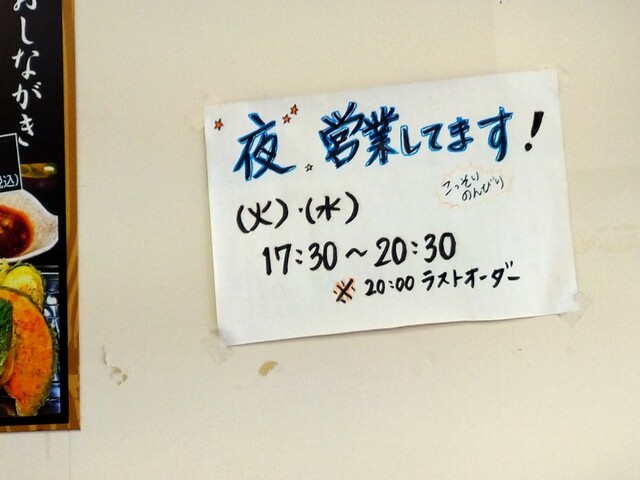 おしながき
込)
夜 営業してます!
こっそり
のんびり
(火)・(水)
17:30〜20:30
※ 20:00 ラストオーダー